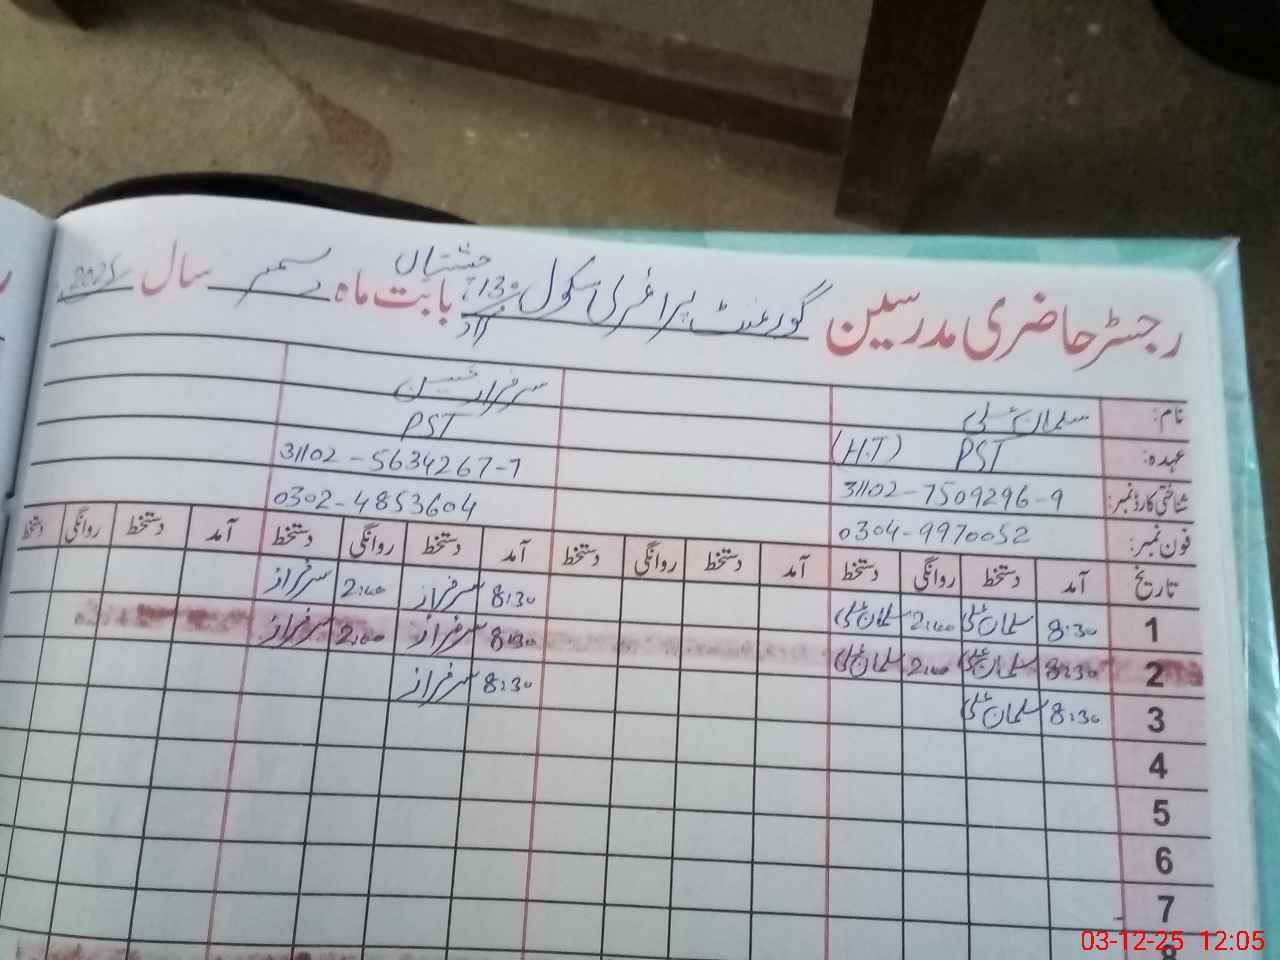 رجسٹر حاضری مدرسین گورنمنٹ پرائمری سکول 130 مراد چشتیاں بابت ماہ دسمبر سال 2025
نام: سلمان علی سرفراز حسین
عہدہ: PST (H.T) PST
شناختی کارڈ نمبر: 31102-7509296-9 31102-5634267-7
فون نمبر: 0304-9970052 0302-4853604
تاریخ آمد دستخط روانگی دستخط آمد دستخط روانگی دستخط آمد دستخط روانگی دستخط آمد دستخط روانگی دستخط
1 8:30 سلمان علی 2:00 سلمان علی 8:30 سرفراز 2:00 سرفراز
2 8:30 سلمان علی 2:00 سلمان علی 8:30 سرفراز 2:00 سرفراز
3 8:30 سلمان علی 8:30 سرفراز
4
5
6
7
8
03-12-25 12:05